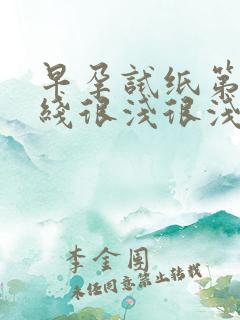 早孕試纸第
綫很淺很淺
李金圍
未经同意禁止转载